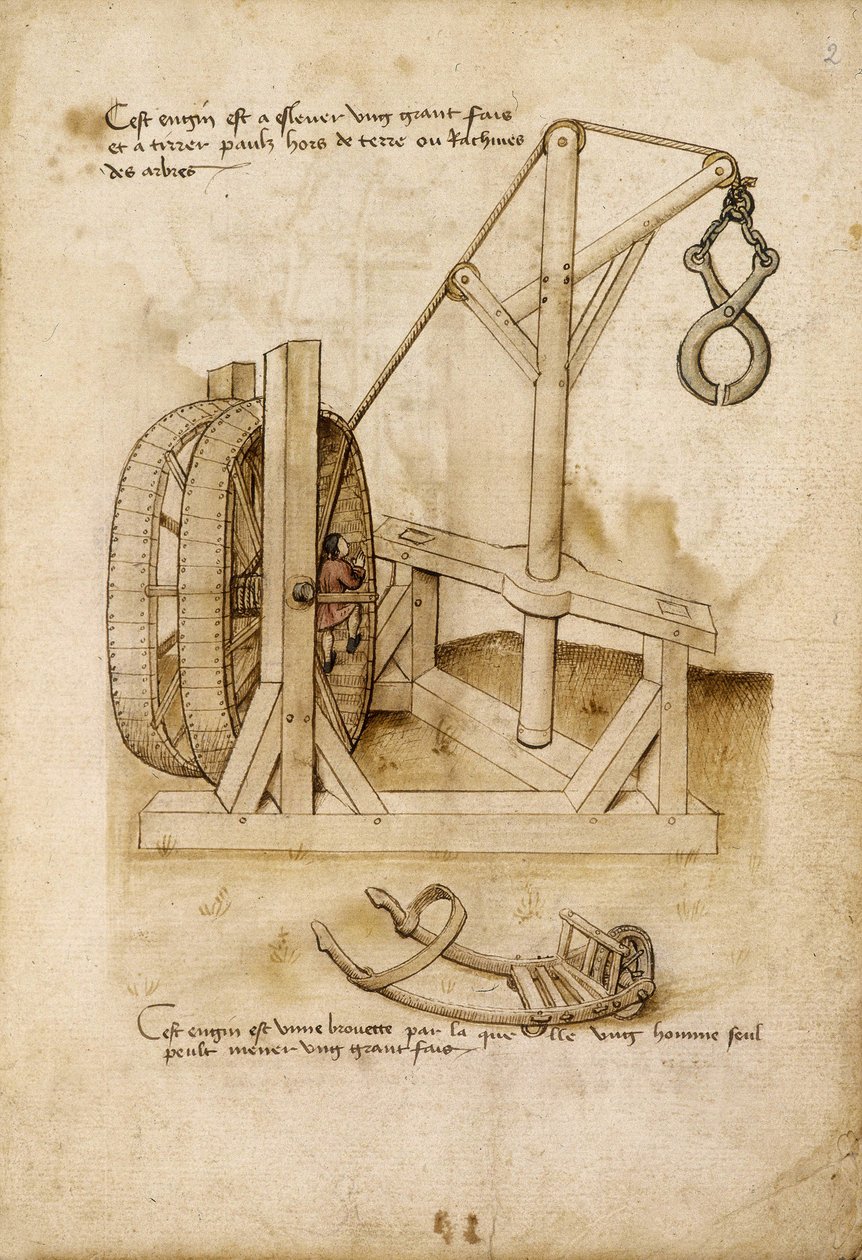 2
Cest engin est a eslever ung grant fais
et a tirrer paulz hors de terre ou Rachines
des arbres
Cest engin est vnne brouette par la que elle ung homme seul
peult mener ung grant fais